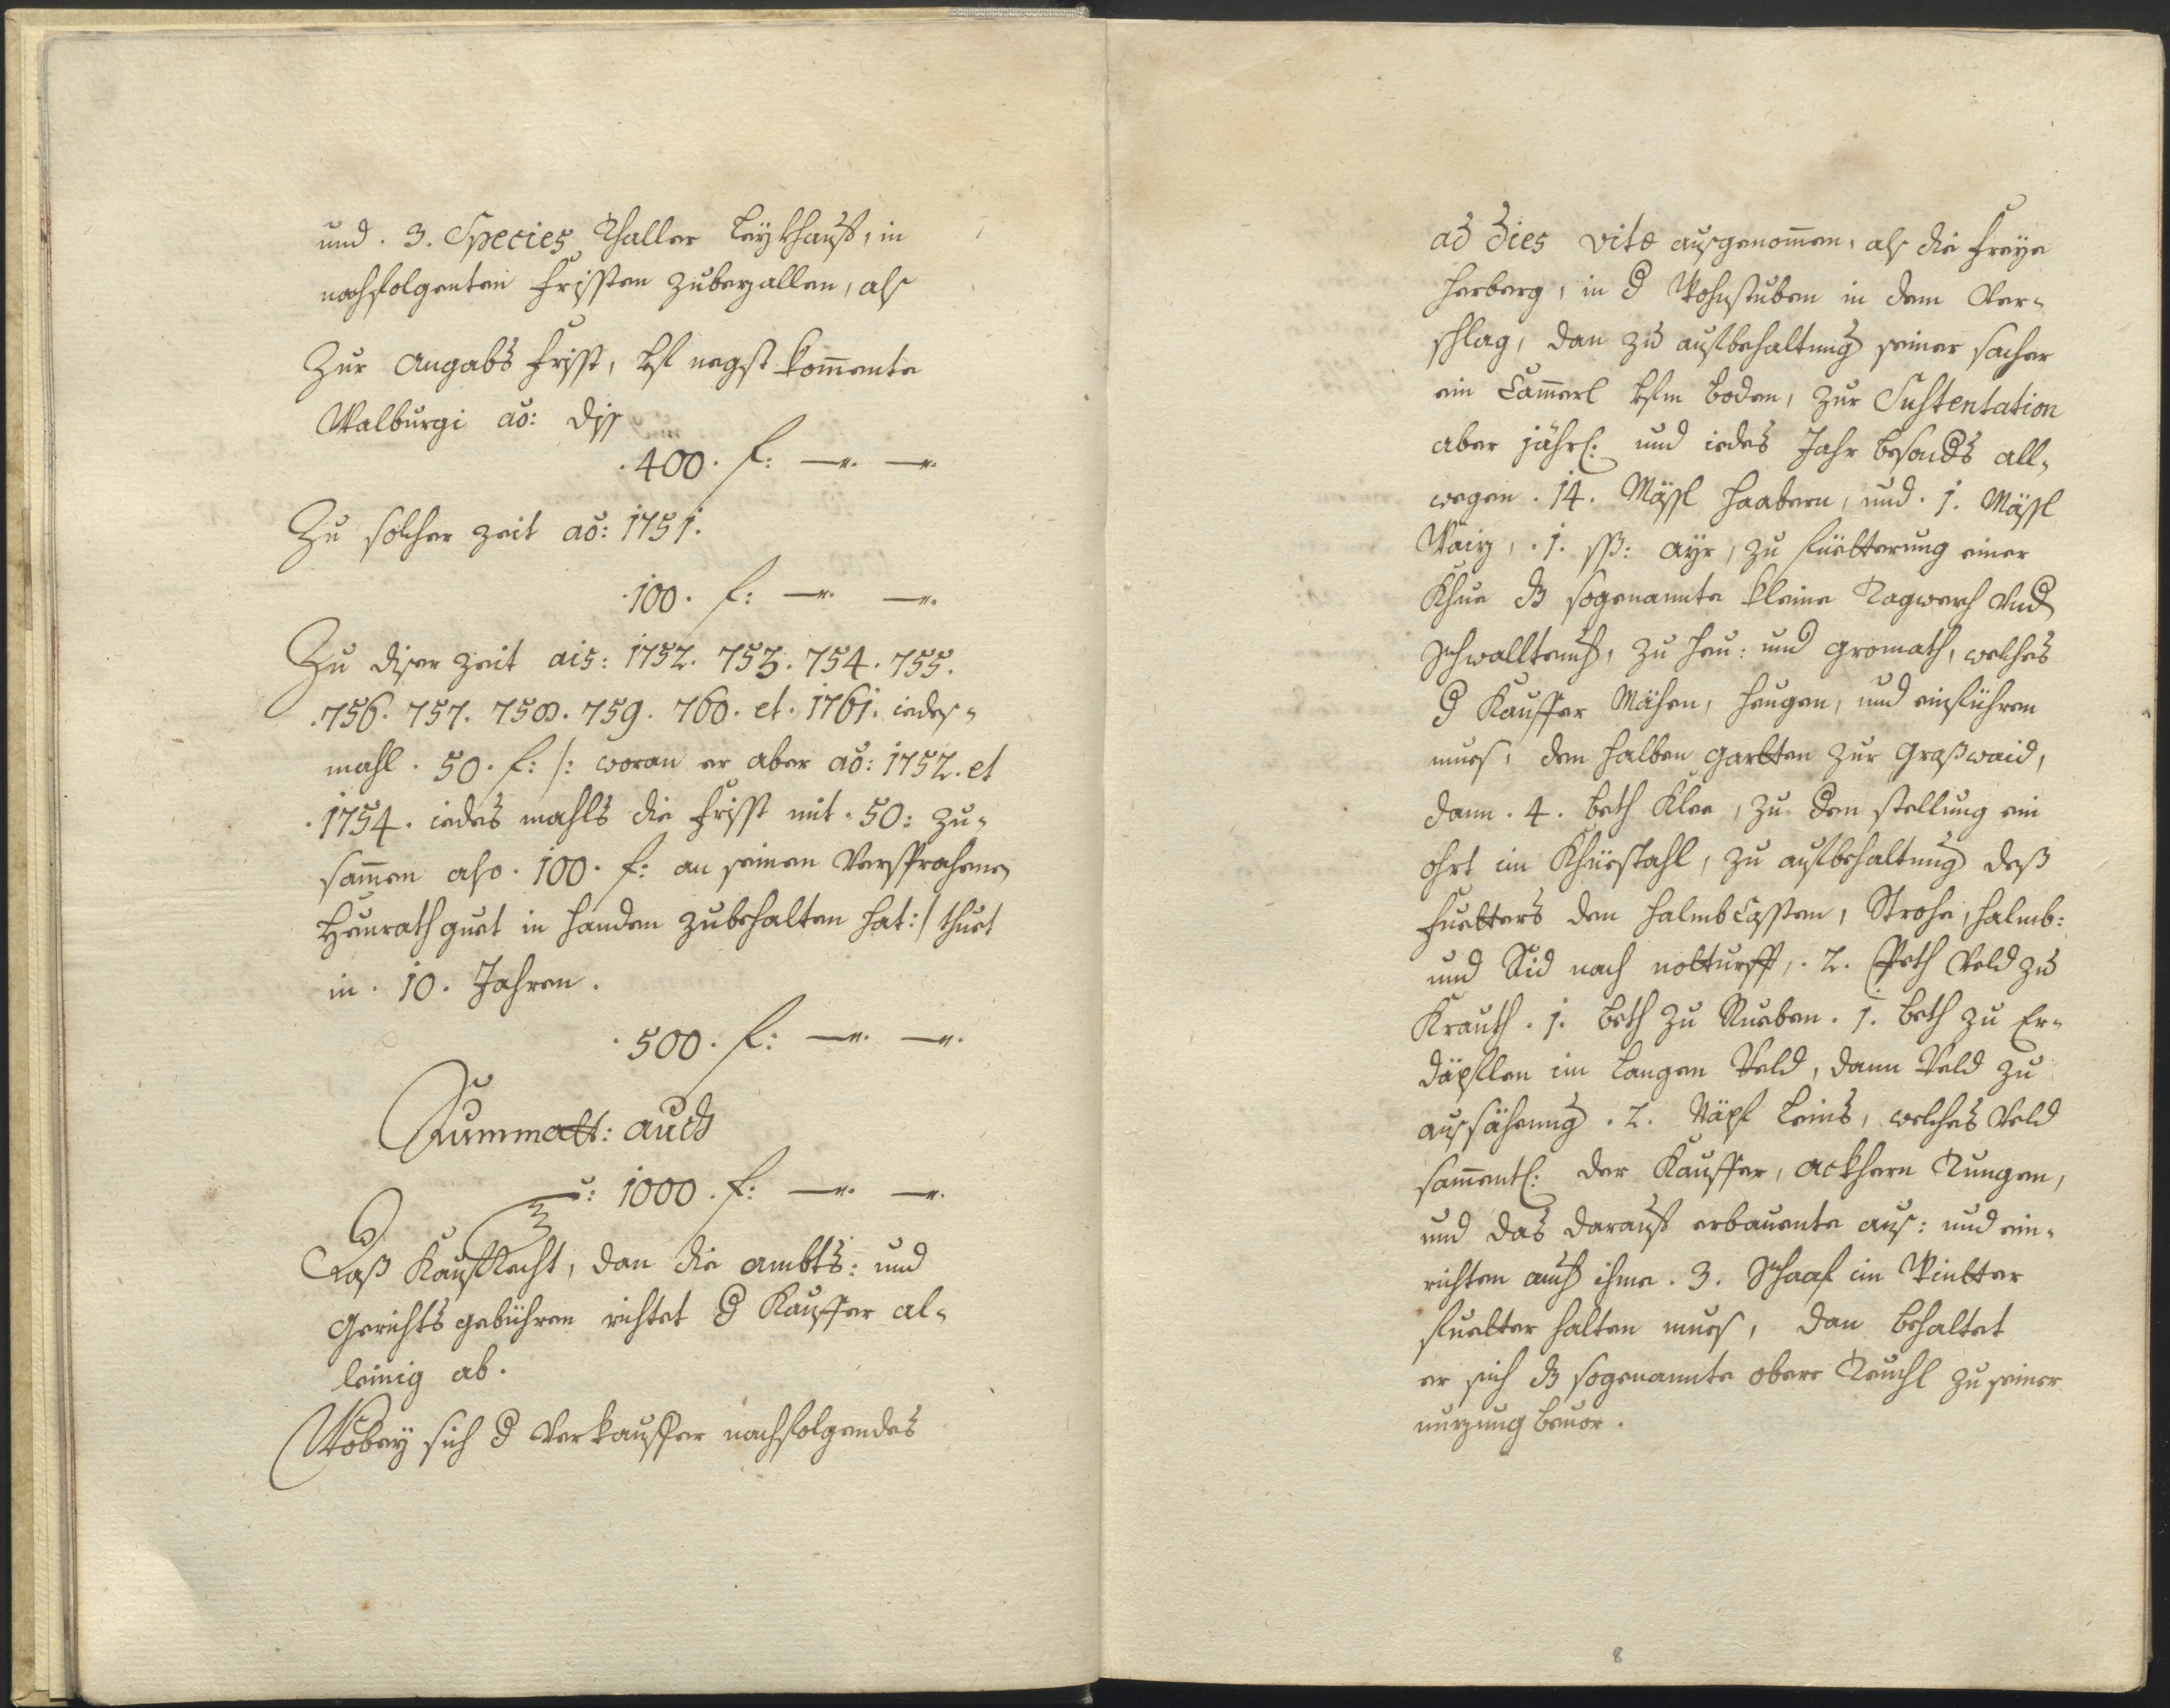 und . 3. Species Thaller Leykhauff, in
nachfolgenten Frissten zubezallen, als
Zur Angabs Frisst, bss negst kommente
Walburgi ao: diss
. 400 . f: —„. —„.
Zu solcher zeit ao: 1751.
. 100 . f: —„. —„.
Zu diser zeit ais: 1752. 753. 754. 755.
. 756. 757. 758. 759. 760. et. 1761. iedes=
mahl . 50 . f: /: woran er aber ao: 1752. et
. 1754 . iedes mahls die Frisst mit . 50: zu=
sammen also . 100 . f: an seinen Versprochenen
Heurath guet in handen zubehalten hat :/ thuet
in . 10 . Jahren .
. 500 . f: —„. —„.
Summatt: auch
: 1000 . f: —„. —„.
Daß Kauffrecht, dan die ambts: und
Gerichts gebühren richtet d Kauffer al=
leinig ab .
Wobey sich d Verkauffer nachfolgendes
ad dies vitae ausgenommen, als die Freye
Herberg, in d Wohnstuben in dem Ver=
schlag, dan zu aufbehaltung seiner sachen
ein Cammerl bssm Boden, zur Sustentation
aber jährl: und iedes Jahr besonds all=
wegen . 14 . Mässl Haabern, und . 1 . Mässl
Waiz, . 1 . ss: ayr, zu fuetterung einer
Khue dz sogenannte kleine Tagwerch und
Schwalltenes, zu Heu: und gromath, welches
d Kauffer Mähen, heugen, und einführen
mues, den halben gartten zur Graßwaid,
dann . 4 . beth Klee, zu den stellung ein
ohrt im Khüestahl, zu aufbehaltung deß
Fuetters den Halmb Cassten, Strohe, halmb:
und Sid nach notturfft, . 2 . Peth Veld zu
Krauth . 1 . beth zu Rueben . 1 . beth zu Er=
däpfflen im Langen Veld, dann Veld zu
aussähenng . 2 . Näpf Leins, welches Veld
samentl: der Kauffer, ackhern Tungen,
und das darauf erbauente aus: und ein=
richten auch ihme . 3 . Schaaf im Wintter
fuetter halten mues, dan behaltet
er sich dz sogenannte obere Teuchl zu seiner
nuzung beuor .
8